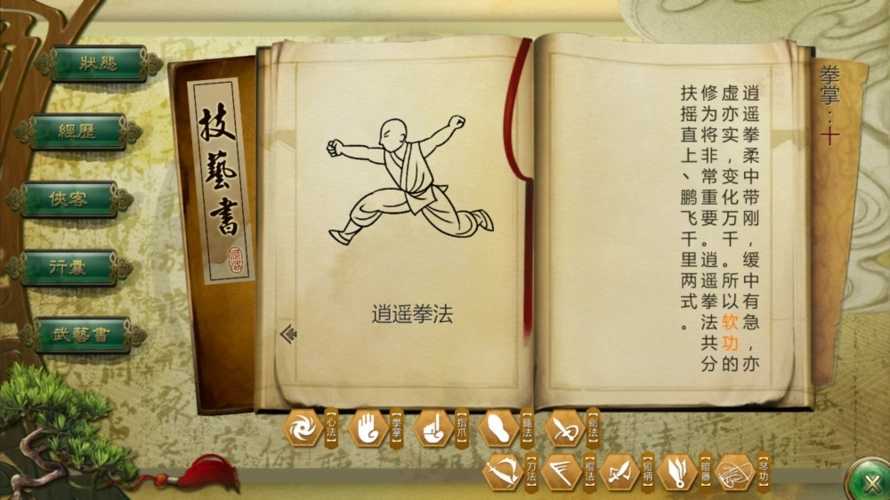 狀態
經歷
俠客
行囊
武藝書
技藝書
逍遥拳法
拳掌：十
逍遥拳柔中带刚，缓中有急，亦
虚亦实，变化万千。所以软功的
修为将非常重要。逍遥拳法共分
扶摇直上、鹏飞千里两式。
【心法】
【拳掌】
【指爪】
【腿法】
【剑法】
【刀法】
【棍法】
【暗器】